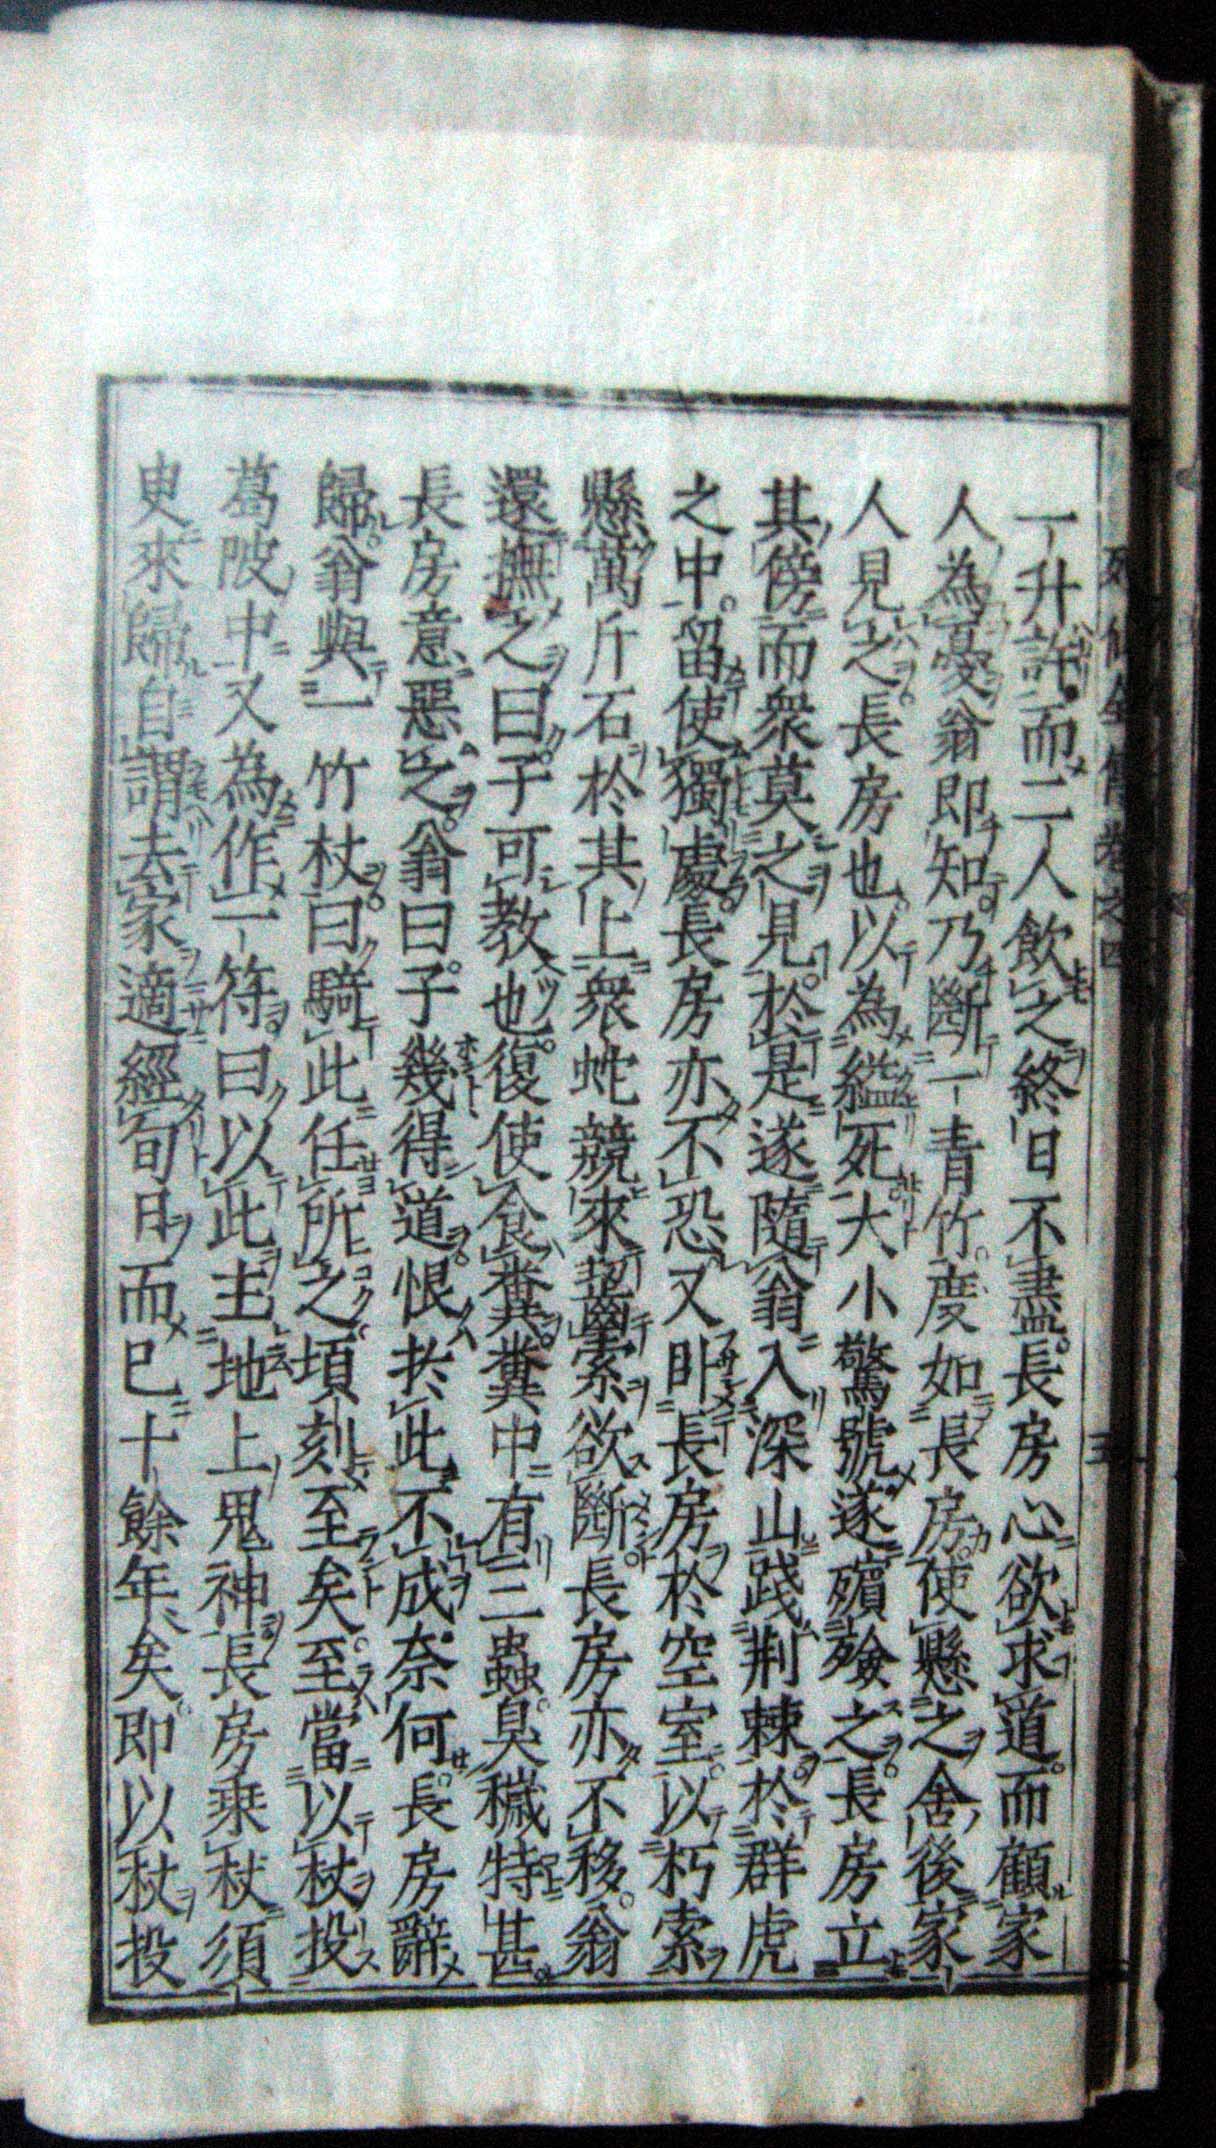 一升許而二人飲之終日不盡長房心欲求道而顧家
人為憂翁即知乃斷一青竹度如長房使懸之舍後家
人見之長房也以為縊死大小驚號遂殯殮之長房立
其傍而衆莫之見於是遂隨翁入深山踐荆棘於群虎
之中留使獨處長房亦不恐又卧長房於空室以朽索
懸萬斤石於其上衆蛇競來齧索欲斷長房亦不移翁
還撫之曰子可教也復使食糞糞中有三蟲臭穢特甚
長房意惡之翁曰子幾得道恨於此不成奈何長房辭
歸翁與一竹杖曰騎此任所之頃刻至矣至當以杖投
葛陂中又為作一符曰以此主地上鬼神長房乗杖須
臾來歸自謂去家適經旬日而已十餘年矣即以杖投